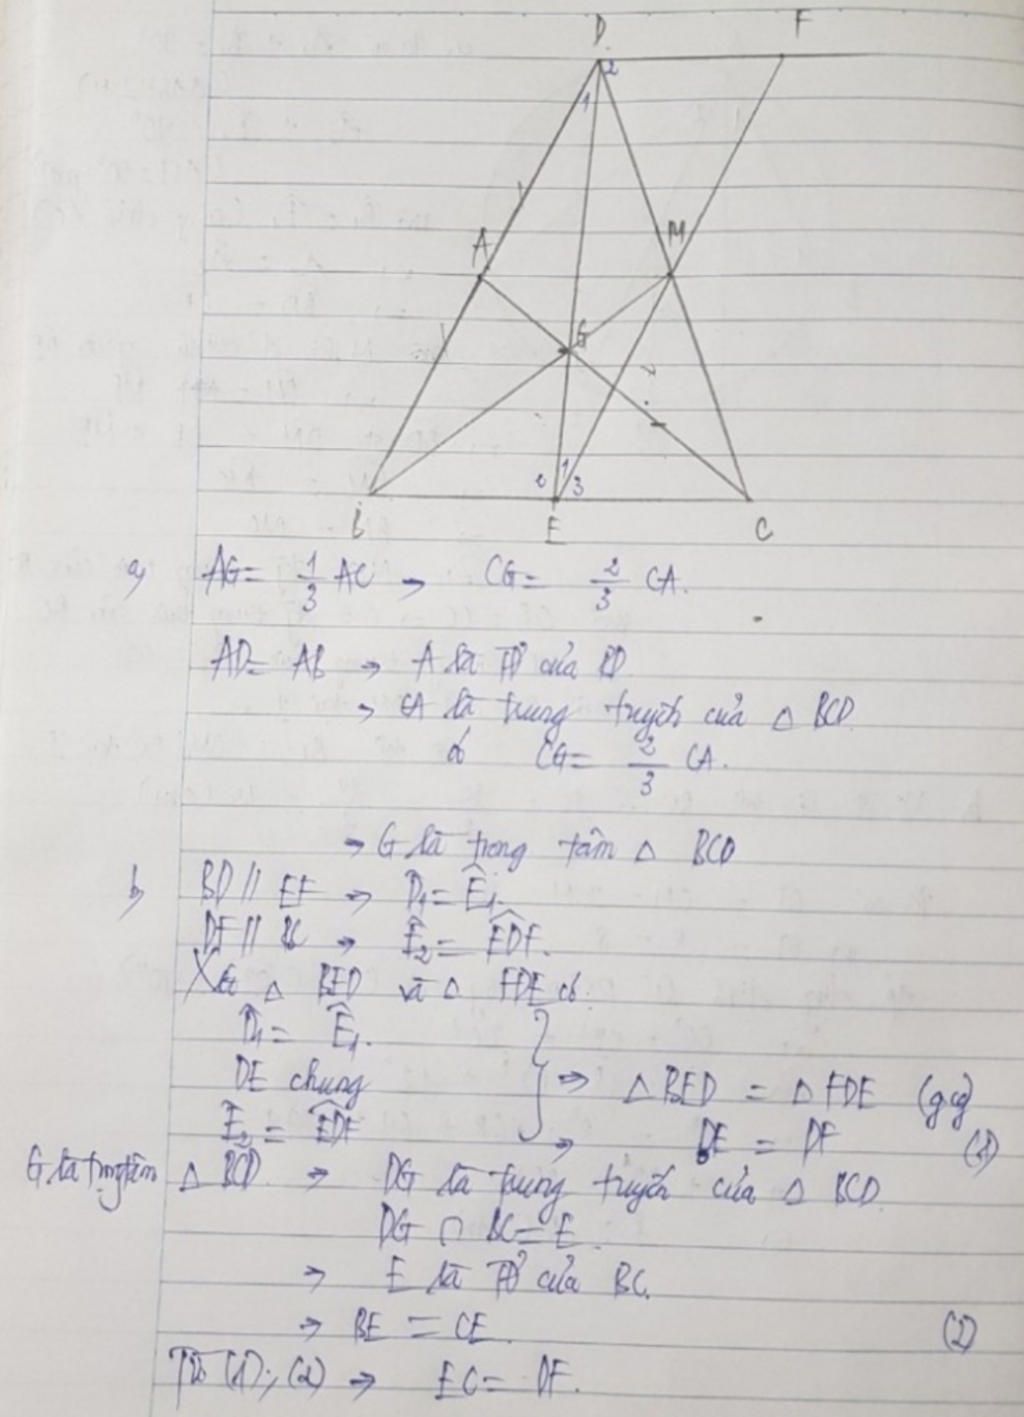 D F
2
1
A M
G
2 1 3
B E C
a) AG = 1/3 AC → CG = 2/3 CA.
AD = AB → A là TĐ của BD
→ CA là trung tuyến của △ BCD
có CG = 2/3 CA.
→ G là trọng tâm △ BCD
b) BD // EF → D̂₁ = Ê₁.
DF // BC → Ê₂ = EDF̂.
Xét △ BED và △ FDE có:
D̂₁ = Ê₁.
DE chung } ⇒ △ BED = △ FDE (gcg)
Ê₂ = EDF̂ ⇒ BE = DF (1)
G là trọng tâm △ BCD ⇒ DG là trung tuyến của △ BCD
DG ∩ BC = E
⇒ E là TĐ của BC.
⇒ BE = CE (2)
Từ (1); (2) ⇒ EC = DF.